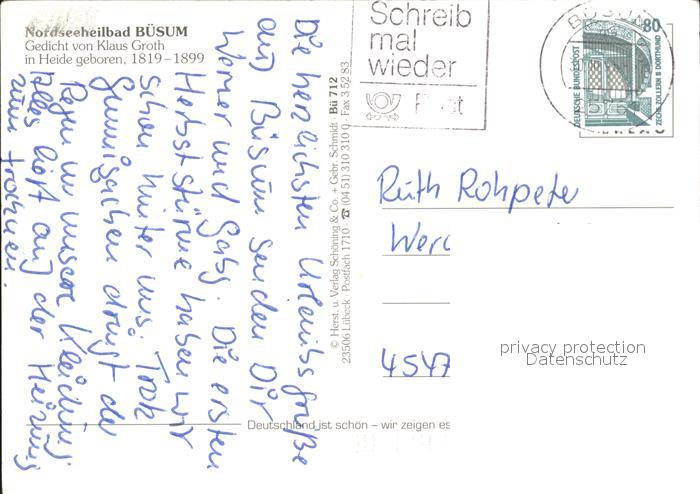 Nordseeheilbad BÜSUM
Gedicht von Klaus Groth
in Heide geboren, 1819–1899
Die herzlichsten Urlaubsgrüße
aus Büsum senden Dir
Werner und Gaby. Die ersten
Herbststürme haben wir
schon hinter uns. Trotz
Gummijacken dringt der
Regen in unsere Kleidung.
Alles liegt auf der Heizung
zum trocknen.
© Herst. u. Verlag Schöning & Co. + Gebr. Schmidt · Bü 712
23506 Lübeck · Postfach 1710 · ☎ (04 51) 310 310 · Fax 3 52 83
Schreib
mal
wieder
Post
BÜSUM
80
DEUTSCHE BUNDESPOST
ZECHE ZOLLERN II DORTMUND
Ruth Rohpeter
Wer
4547
privacy protection
Datenschutz
Deutschland ist schön – wir zeigen es